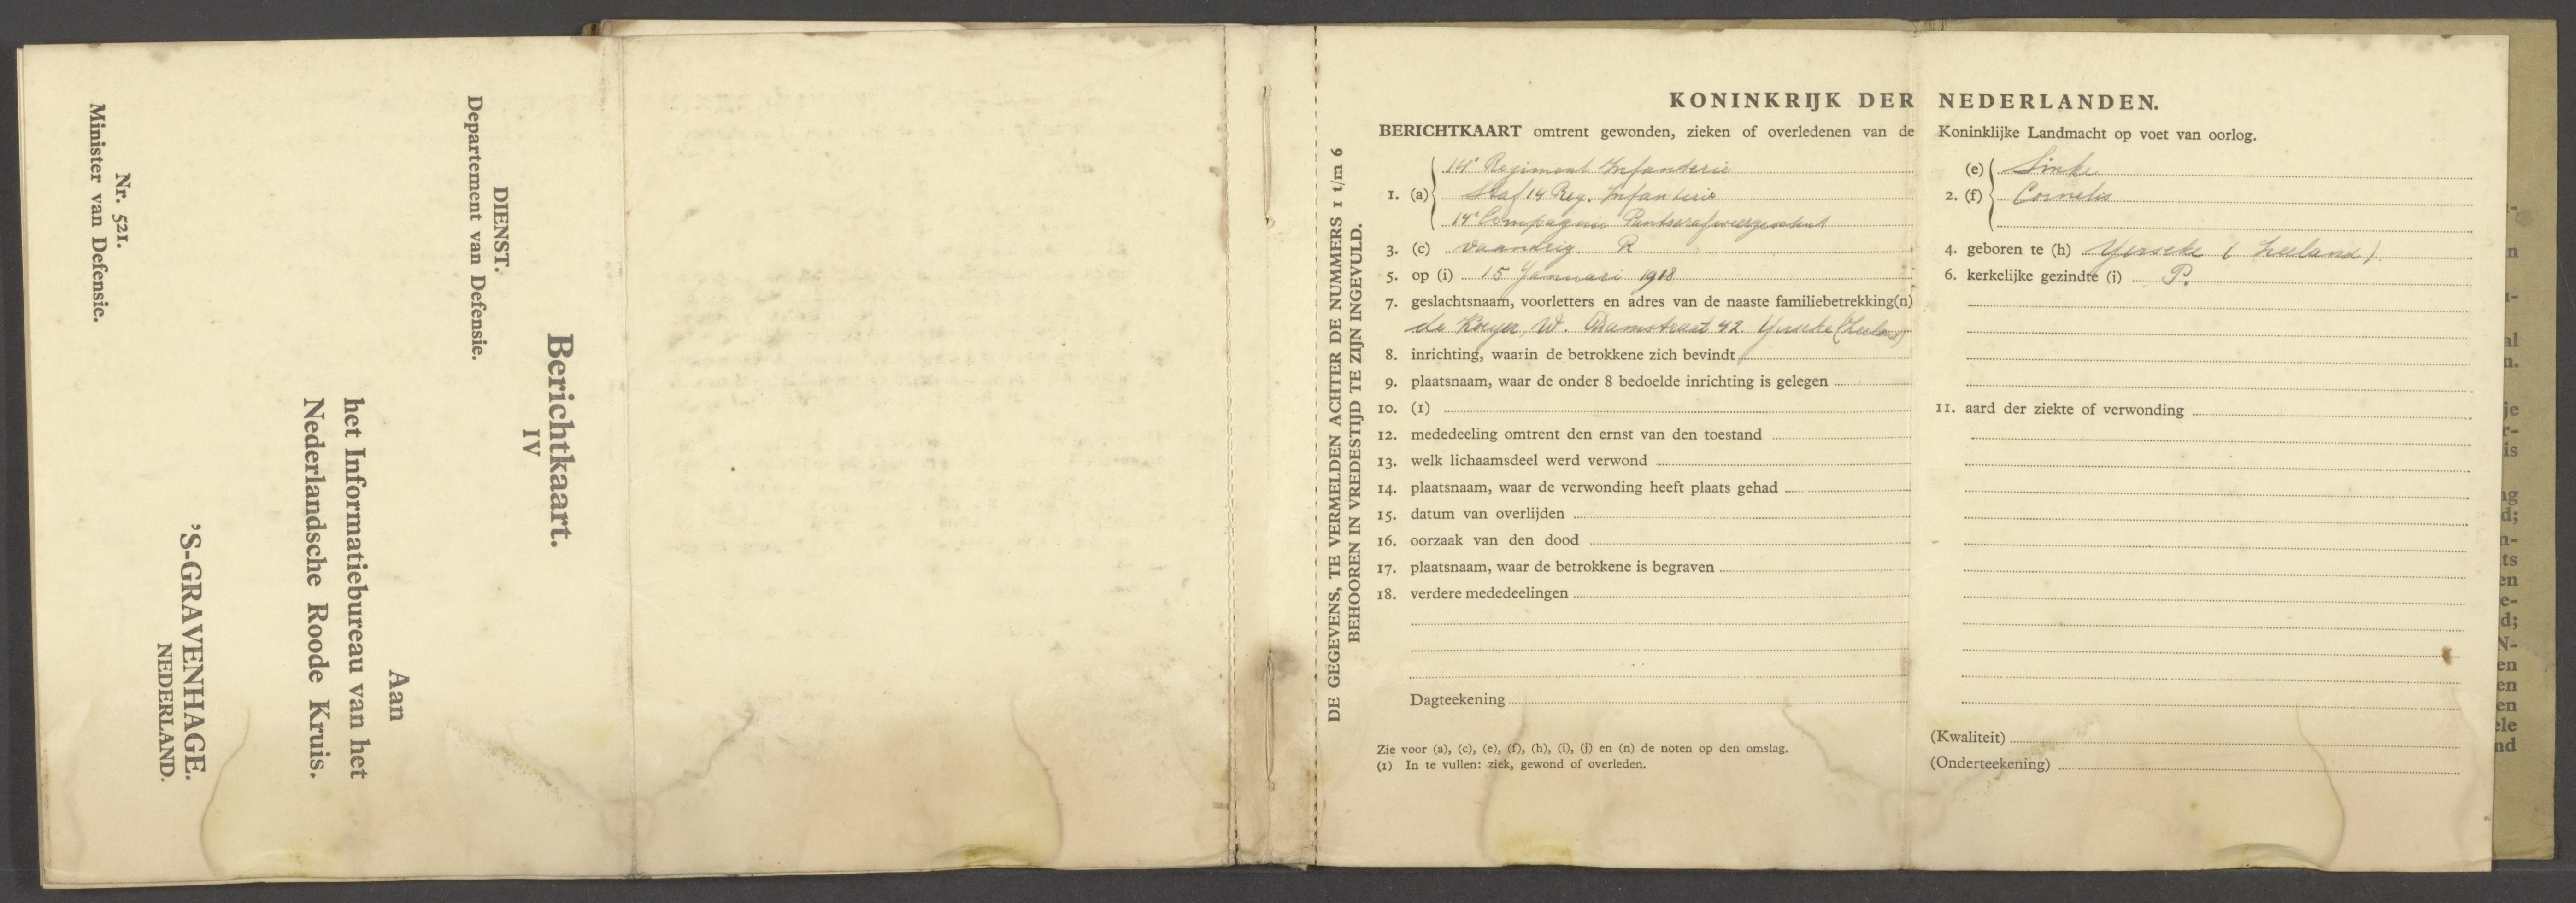 Nr. 521.
Minister van Defensie.
DIENST.
Departement van Defensie.
Berichtkaart.
IV
Aan
het Informatiebureau van het
Nederlandsche Roode Kruis.
'S-GRAVENHAGE.
NEDERLAND.
DE GEGEVENS, TE VERMELDEN ACHTER DE NUMMERS 1 t/m 6
BEHOOREN IN VREDESTIJD TE ZIJN INGEVULD.
KONINKRIJK DER NEDERLANDEN.
BERICHTKAART omtrent gewonden, zieken of overledenen van de Koninklijke Landmacht op voet van oorlog.
1. (a) 14e Regiment Infanterie
Staf 14 Reg. Infanterie
14e Compagnie Pantserafweergeschut
2. (e) Sinke
(f) Cornelis
3. (c) vaandrig R
4. geboren te (h) Yerseke (Zeeland)
5. op (i) 15 Januari 1918
6. kerkelijke gezindte (j) P.
7. geslachtsnaam, voorletters en adres van de naaste familiebetrekking(n)
de Koeyer, W. Damstraat 42. Yerseke (Zeeland)
8. inrichting, waarin de betrokkene zich bevindt
9. plaatsnaam, waar de onder 8 bedoelde inrichting is gelegen
10. (1)
11. aard der ziekte of verwonding
12. mededeeling omtrent den ernst van den toestand
13. welk lichaamsdeel werd verwond
14. plaatsnaam, waar de verwonding heeft plaats gehad
15. datum van overlijden
16. oorzaak van den dood
17. plaatsnaam, waar de betrokkene is begraven
18. verdere mededeelingen
Dagteekening
(Kwaliteit)
(Onderteekening)
Zie voor (a), (c), (e), (f), (h), (i), (j) en (n) de noten op den omslag.
(1) In te vullen: ziek, gewond of overleden.